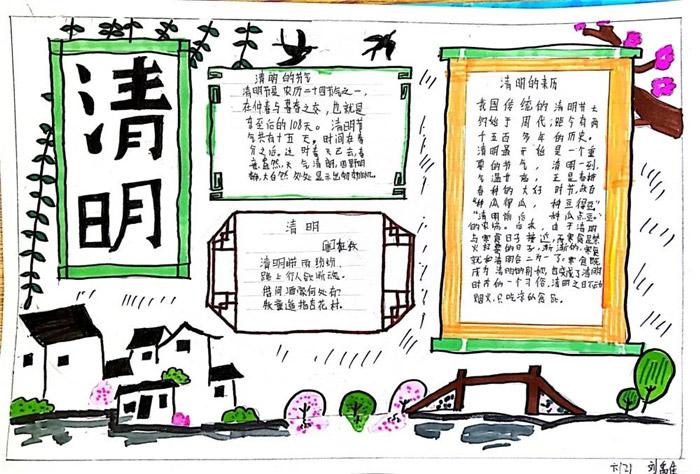 清明
清明的节气
清明节是农历二十四节气之一，
在仲春与暮春之交，也就是
冬至后的108天。清明节
气共有十五天。时间在春
分之后。这时春天已去，春
意盎然，天气清朗，田野明
静，大自然处处显示出勃勃
清明
清明时雨纷纷，
路上行人欲断魂。
借问酒家何处有？
牧童遥指杏花村。
清明的来历
我国传统的清明节大
约始于周代，距今有两
千五百多年的历史。
清明最开始是一个重
要的节气，清明一到，
气温升高，正是春耕
春种的大好时节，故有
“种瓜得瓜，种豆得豆”
“清明前后，种瓜点豆”
的农谚。后来，由于清明
与寒食日子接近，而寒食是禁
火扫墓的日子，渐渐的，寒食
就和清明合二为一了，寒食既
成为清明的别称，也变成了清明
时节的一个习俗，清明之日不动
烟火，只吃凉的食品。